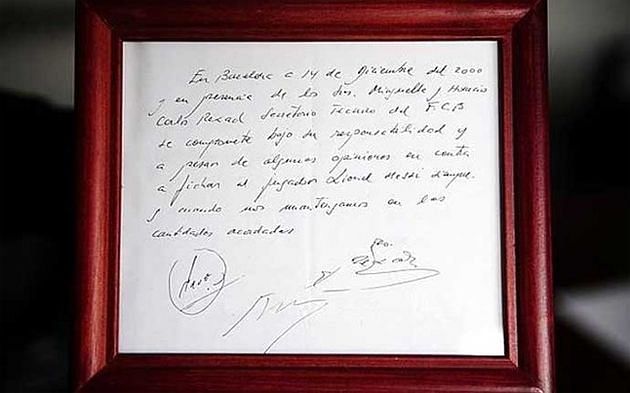 En Barcelona a 14 de Diciembre del 2000
y en presencia de los Srs. Minguella y Horacio
Carlos Rexach Secretario Tecnico del F.C.B
se compromete bajo su responsabilidad y
a pesar de algunas opiniones en contra
a fichar al jugador Lionel Messi siempre
y cuando nos mantengamos en las
cantidades acordadas